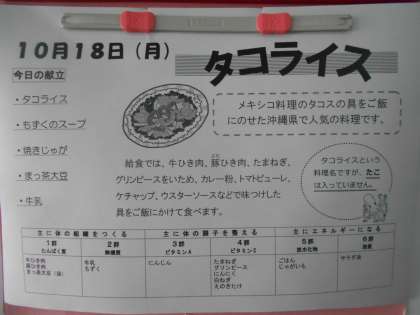 10月18日(月)
タコライス
今日の献立
・タコライス
・もずくのスープ
・焼きじゃが
・まっ茶大豆
・牛乳
メキシコ料理のタコスの具をご飯
にのせた沖縄県で人気の料理です。
給食では、牛ひき肉、豚ひき肉、たまねぎ、
グリンピースをいため、カレー粉、トマトピューレ、
ケチャップ、ウスターソースなどで味つけした
具をご飯にかけて食べます。
タコライスという
料理名ですが、たこ
は入っていません。
主に体の組織をつくる 主に体の調子を整える 主にエネルギーになる
1群 2群 3群 4群 5群 6群
たんぱく質 無機質 ビタミンA ビタミンC 炭水化物 脂質
牛ひき肉 牛乳 にんじん たまねぎ ごはん
豚ひき肉 もずく グリンピース じゃがいも
まっ茶大豆 にんにく
白ねぎ
えのきたけ